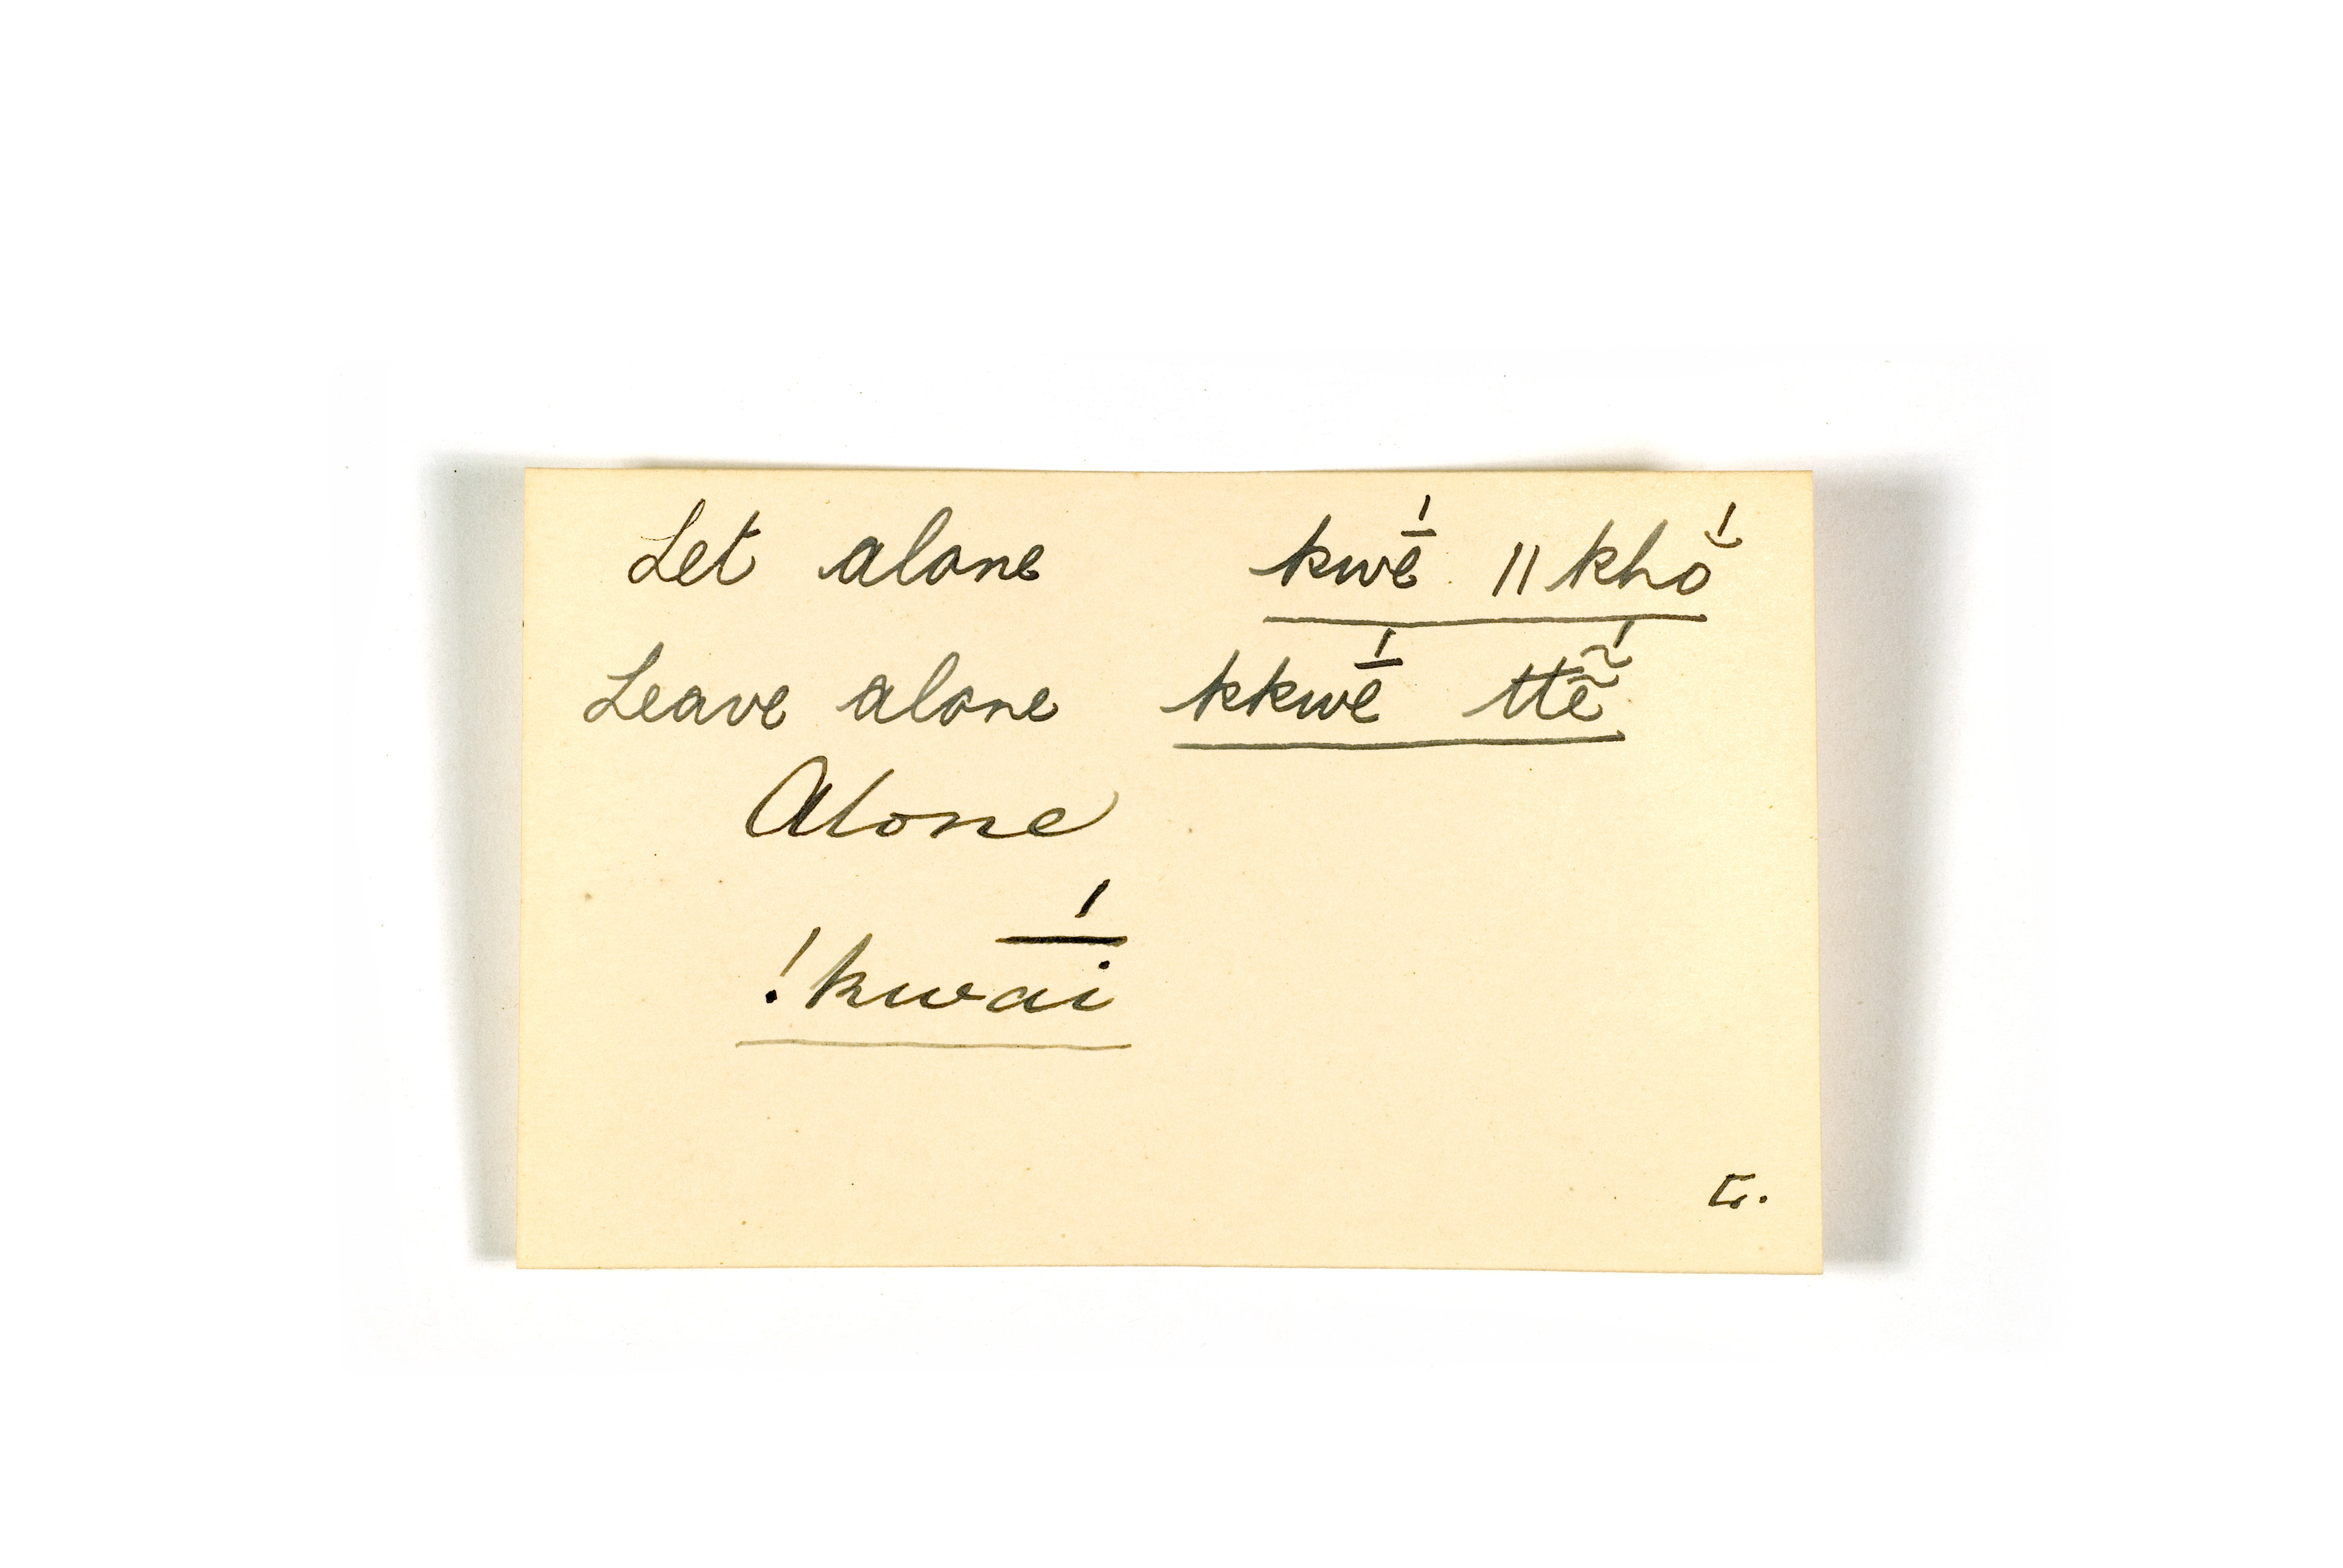 Let alone kwḗ ǁkhŏ́
Leave alone kkwḗ ttẽ̃́
Alone
!kwaī́